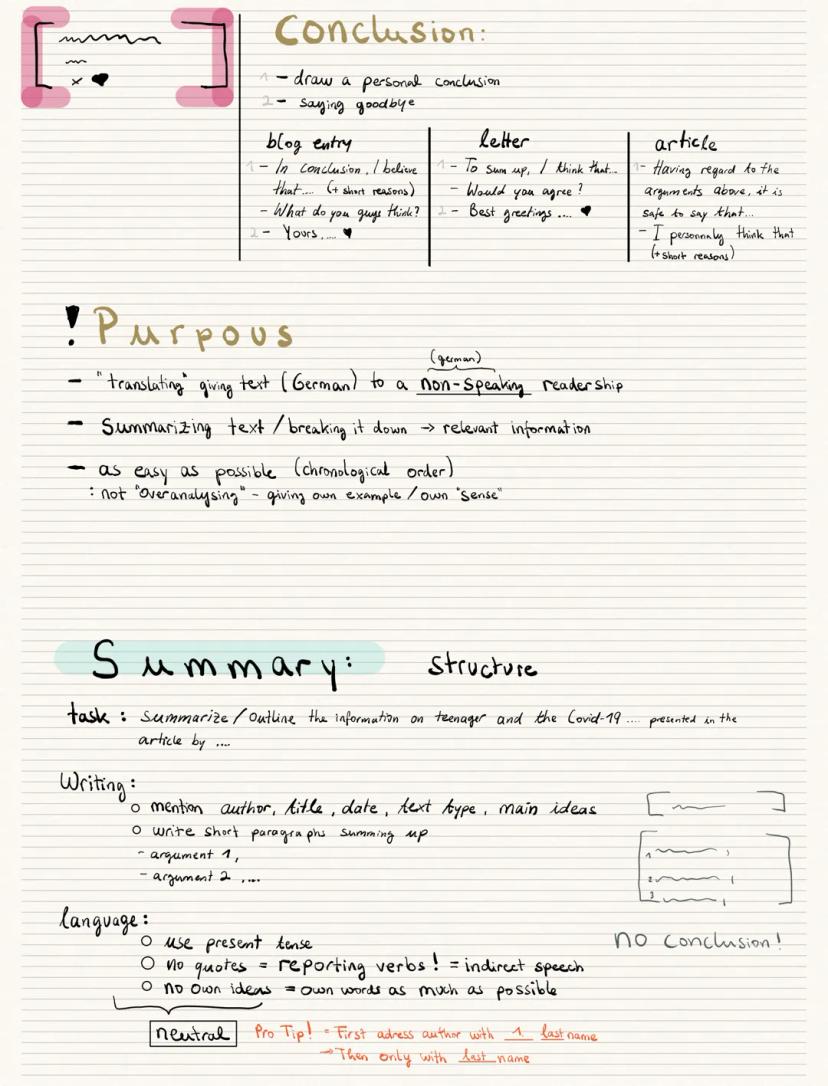 Conclusion:
1 - draw a personal conclusion
2 - saying goodbye
blog entry
1 - In conclusion, I believe
that.... (+ short reasons)
- What do you guys think?
2 - Yours,.... ♥
letter
1 - To sum up, I think that...
- Would you agree?
2 - Best greetings .... ♥
article
1 - Having regard to the
arguments above, it is
safe to say that...
- I personnaly think that
(+ short reasons)
! Purpous
(german)
- "translating" giving text (German) to a non-speaking readership
- Summarizing text / breaking it down → relevant information
- as easy as possible (chronological order)
: not "overanalysing" - giving own example / own "sense"
Summary: Structure
task: summarize / Outline the information on teenager and the Covid-19 .... presented in the
article by ....
Writing:
○ mention author, title, date, text type, main ideas
○ write short paragraphs summing up
- argument 1,
- argument 2 ....
1
2
3
language:
○ use present tense
no conclusion!
○ no quotes = reporting verbs! = indirect speech
○ no own ideas = own words as much as possible
neutral
Pro Tip! = First adress author with 1. last name
→ Then only with last name